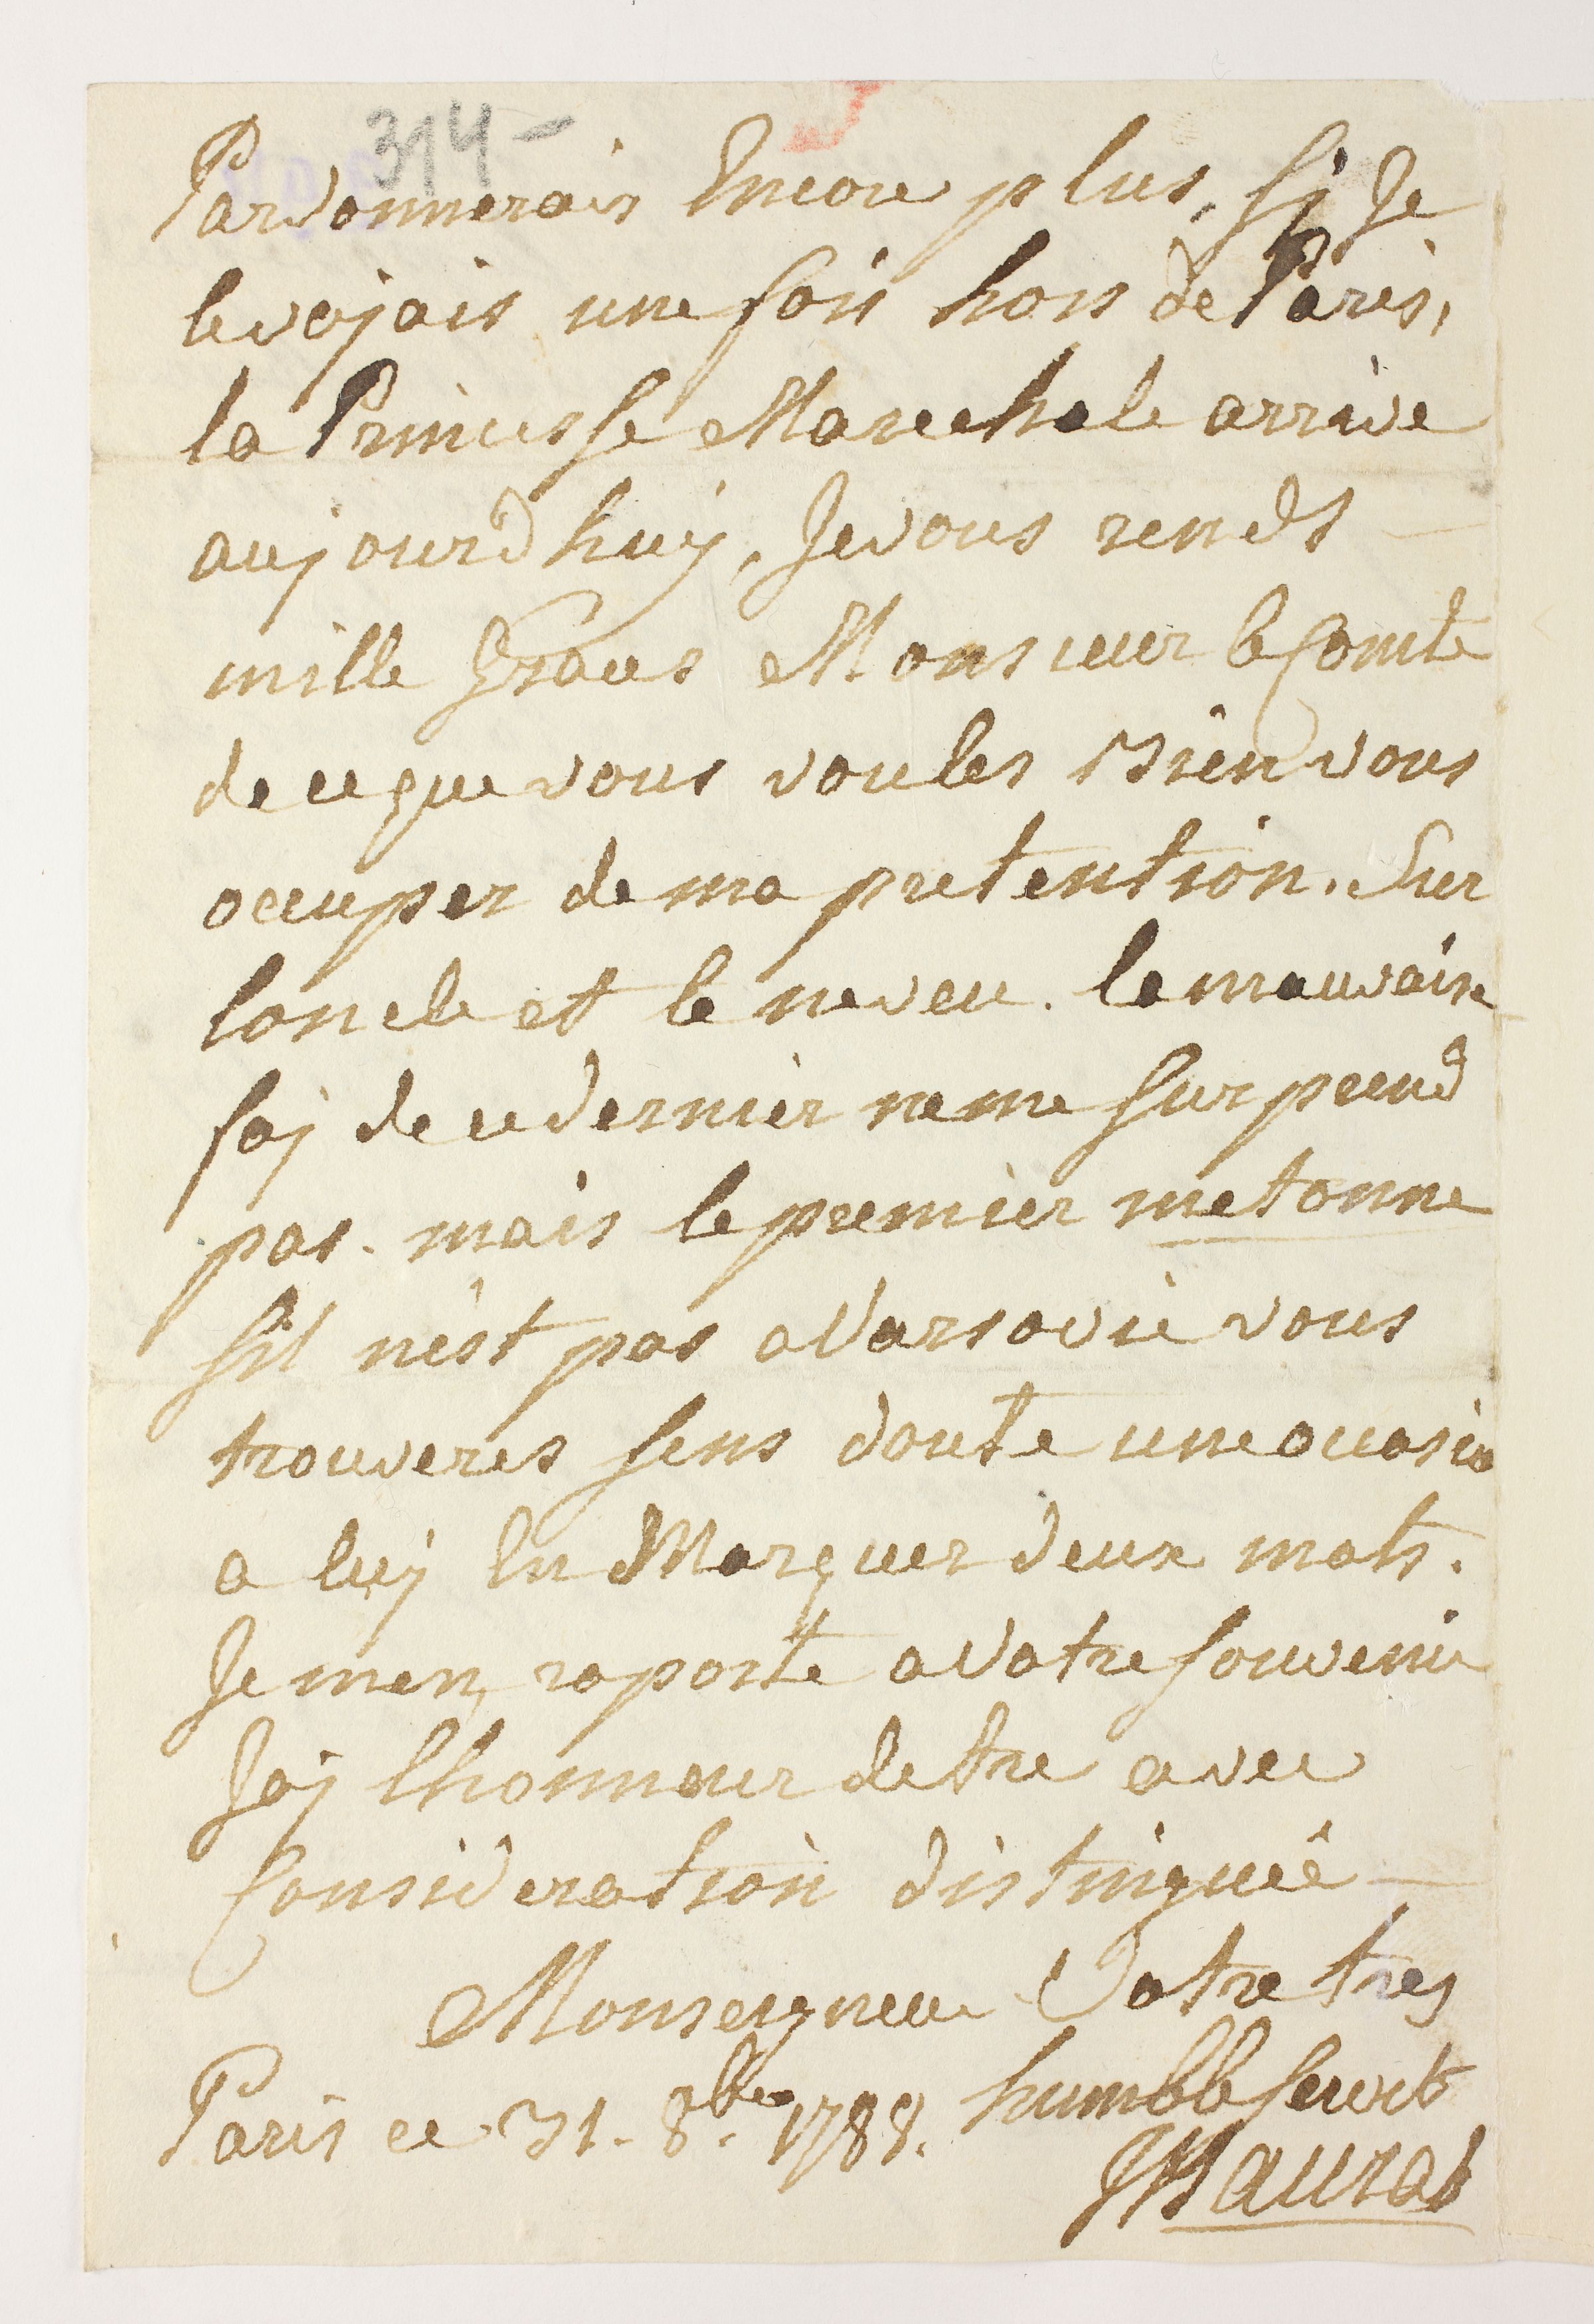 314 -
Pardonnerais Encore plus, si Je
le vojais une fois hors de Paris,
la Princesse Marechale arrive
aujourd'huij, Je vous rends
mille Graces Monsieur le Comte
de ce que vous voules Bien vous
occuper de ma pretention. Sur
loncle et le neveu. la mauvaise
foj de ce dernier ne me surprend
pas. mais le premier metonne
sil nest pas a Varsovie vous
trouveres sens doute une occasion
a luij En Marquer deux mots.
Je men raporte a Votre souvenir
Jaj lhonneur detre avec
Consideration distinguée
Monseigneur Votre tres
Paris ce 31. 8bre 1788. humble servit